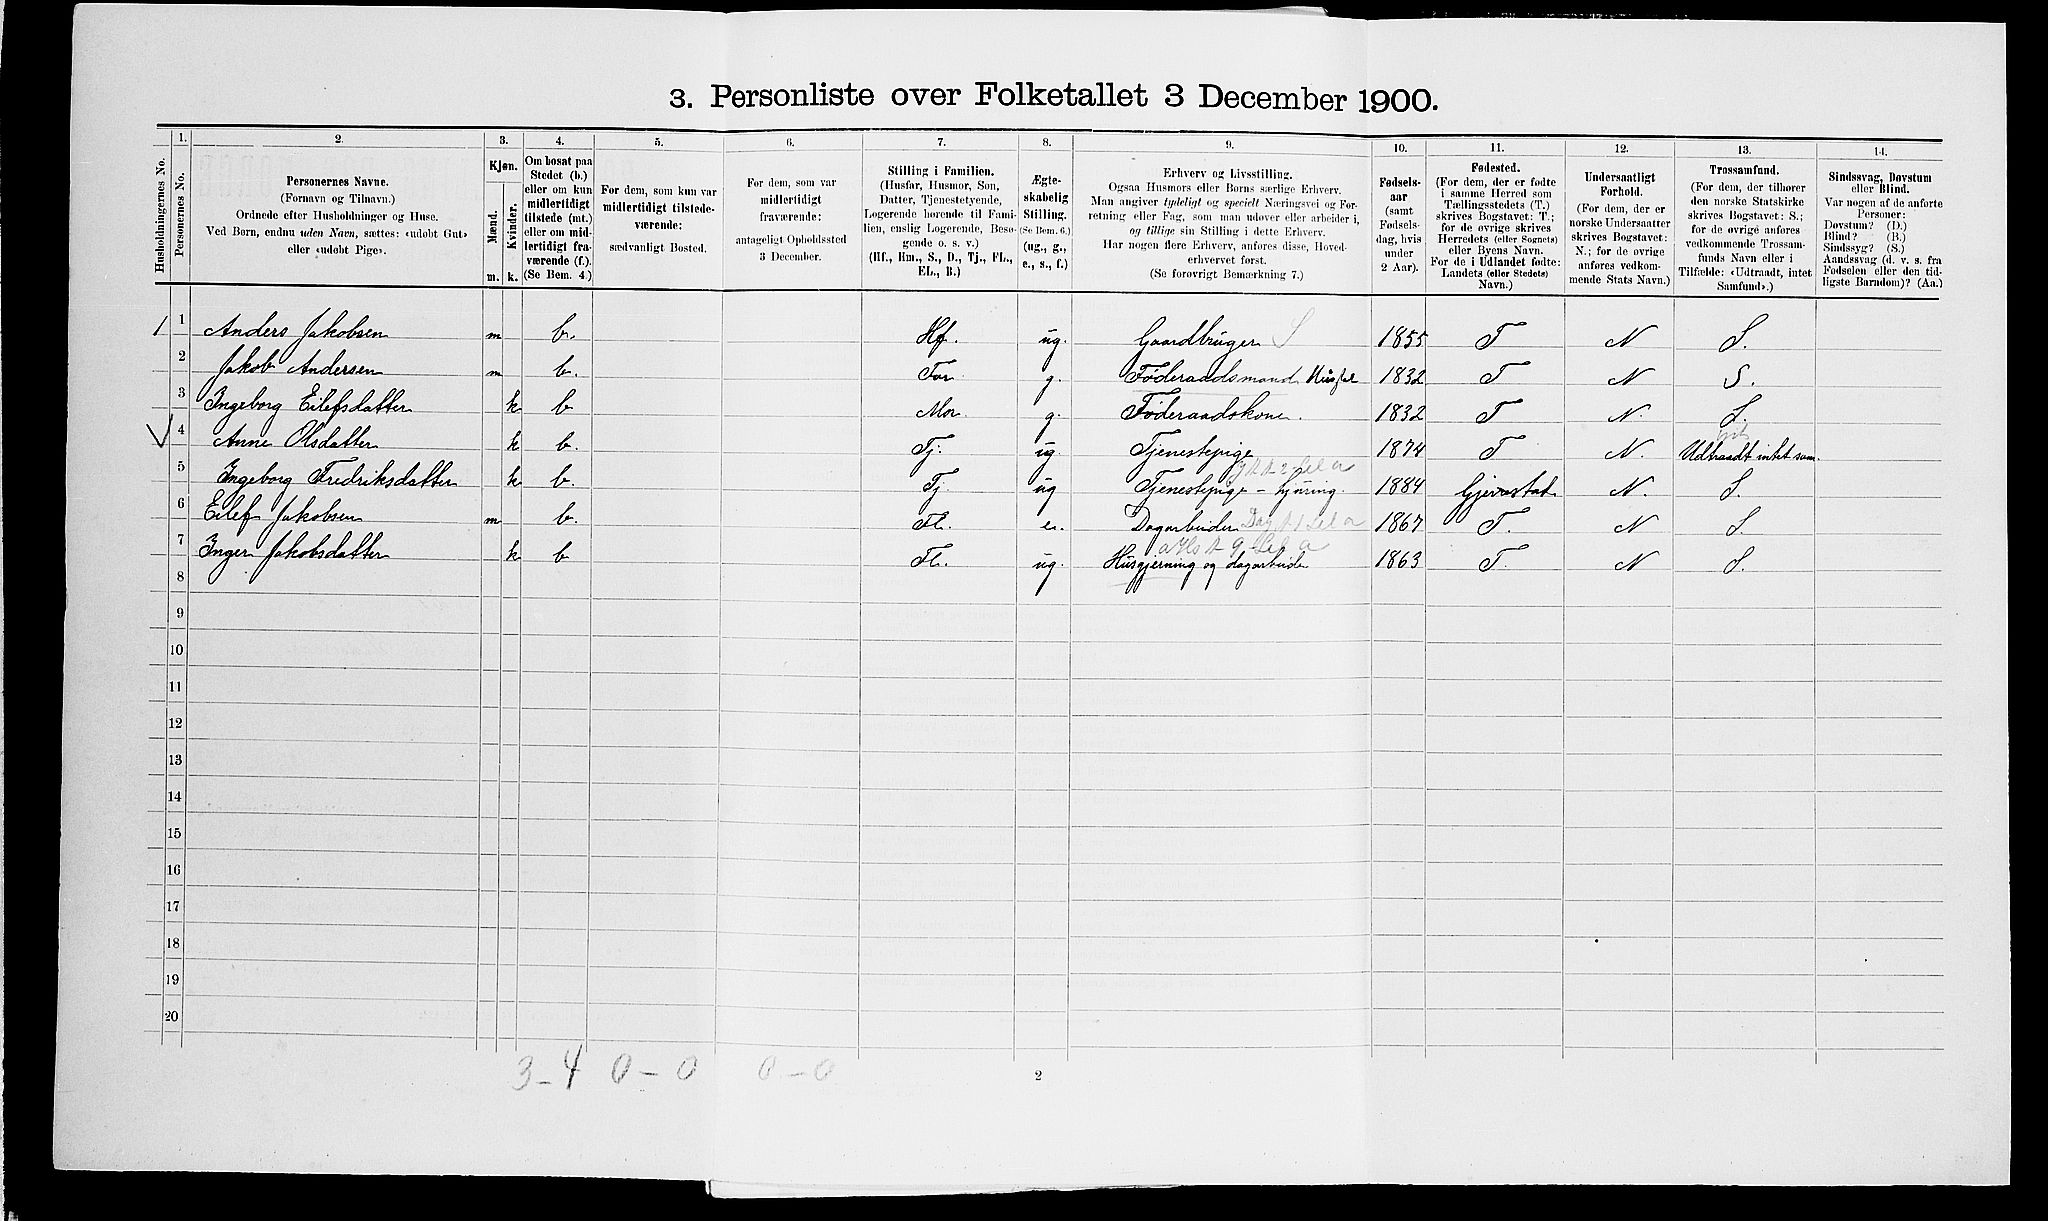 3. Personliste over Folketallet 3 December 1900.
Husholdningernes No.
1.
Personernes No.
2.
Personernes Navne.
(Fornavn og Tilnavn.)
Ordnede efter Husholdninger og Huse.
Ved Børn, endnu uden Navn, sættes: «udøbt Gut»
eller «udøbt Pige».
3.
Kjøn.
Mænd.
Kvinder.
m. k.
4.
Om bosat paa
Stedet (b.)
eller om kun
midlertidigt
tilstede (mt.)
eller om mid-
lertidigt fra-
værende (f.).
(Se Bem. 4.)
5.
For dem, som kun var
midlertidigt tilstede-
værende:
sædvanligt Bosted.
6.
For dem, som var
midlertidigt
fraværende:
antageligt Opholdssted
3 December.
7.
Stilling i Familien.
(Husfar, Husmor, Søn,
Datter, Tjenestetyende,
Logerende hørende til Fami-
lien, enslig Logerende, Besø-
gende o. s. v.)
(Hf., Hm., S., D., Tj., FL.,
EL., B.)
8.
Ægte-
skabelig
Stilling.
(Se Bem. 6.)
(ug., g.,
e., s., f.)
9.
Erhverv og Livsstilling.
Ogsaa Husmors eller Børns særlige Erhverv.
Man angiver tydeligt og specielt Næringsvei og For-
retning eller Fag, som man udøver eller arbeider i,
og tillige sin Stilling i dette Erhverv.
Har nogen flere Erhverv, anføres disse, Hoved-
erhvervet først.
(Se forøvrigt Bemærkning 7.)
10.
Fødsels-
aar
(samt
Fødsels-
dag, hvis
under
2 Aar).
11.
Fødested.
(For dem, der er fødte
i samme Herred som
Tællingsstedets (T.)
skrives Bogstavet: T.;
for de øvrige skrives
Herredets (eller Sognets)
eller Byens Navn.
For de i Udlandet fødte:
Landets (eller Stedets)
Navn.)
12.
Undersaatligt
Forhold.
(For dem, der er
norske Undersaatter
skrives Bogstavet:
N.; for de øvrige
anføres vedkom-
mende Stats Navn.)
13.
Trossamfund.
(For dem, der tilhører
den norske Statskirke
skrives Bogstavet: S.;
for de øvrige anføres
vedkommende Trossam-
funds Navn eller i
Tilfælde: «Udtraadt, intet
Samfund».)
14.
Sindssvag, Døvstum
eller Blind.
Var nogen af de anførte
Personer:
Døvstum? (D.)
Blind? (B.)
Sindssyg? (S.)
Aandssvag (d. v. s. fra
Fødselen eller den tid-
ligste Barndom)? (Aa.)
1 1 Anders Jakobsen m b. Hf. ug. Gaardbruger S 1855 T N S.
2 Jakob Andersen m b. Far g. Føderaadsmand 1832 T N S.
3 Ingeborg Eilefsdatter k b Mor g. Føderaadskone. 1832 T N. S.
4 Anne Olsdatter k b. Tj. ug. Tjenestepige 1874 T N. Udtraadt intet sam.
5 Ingeborg Fredriksdatter k b. Tj. ug Tjenestepige – 1884 Gjerestad N. S.
6 Eilef Jakobsen m b. FL. e. Dagarbeider 1867 T. N S.
7 Inger Jakobsdatter k b FL. ug. Husgjerning og dagarbeide 1863 T. N S.
8
9
10
11
12
13
14
15
16
17
18
19
20
3 – 4 0 – 0 0 – 0
2